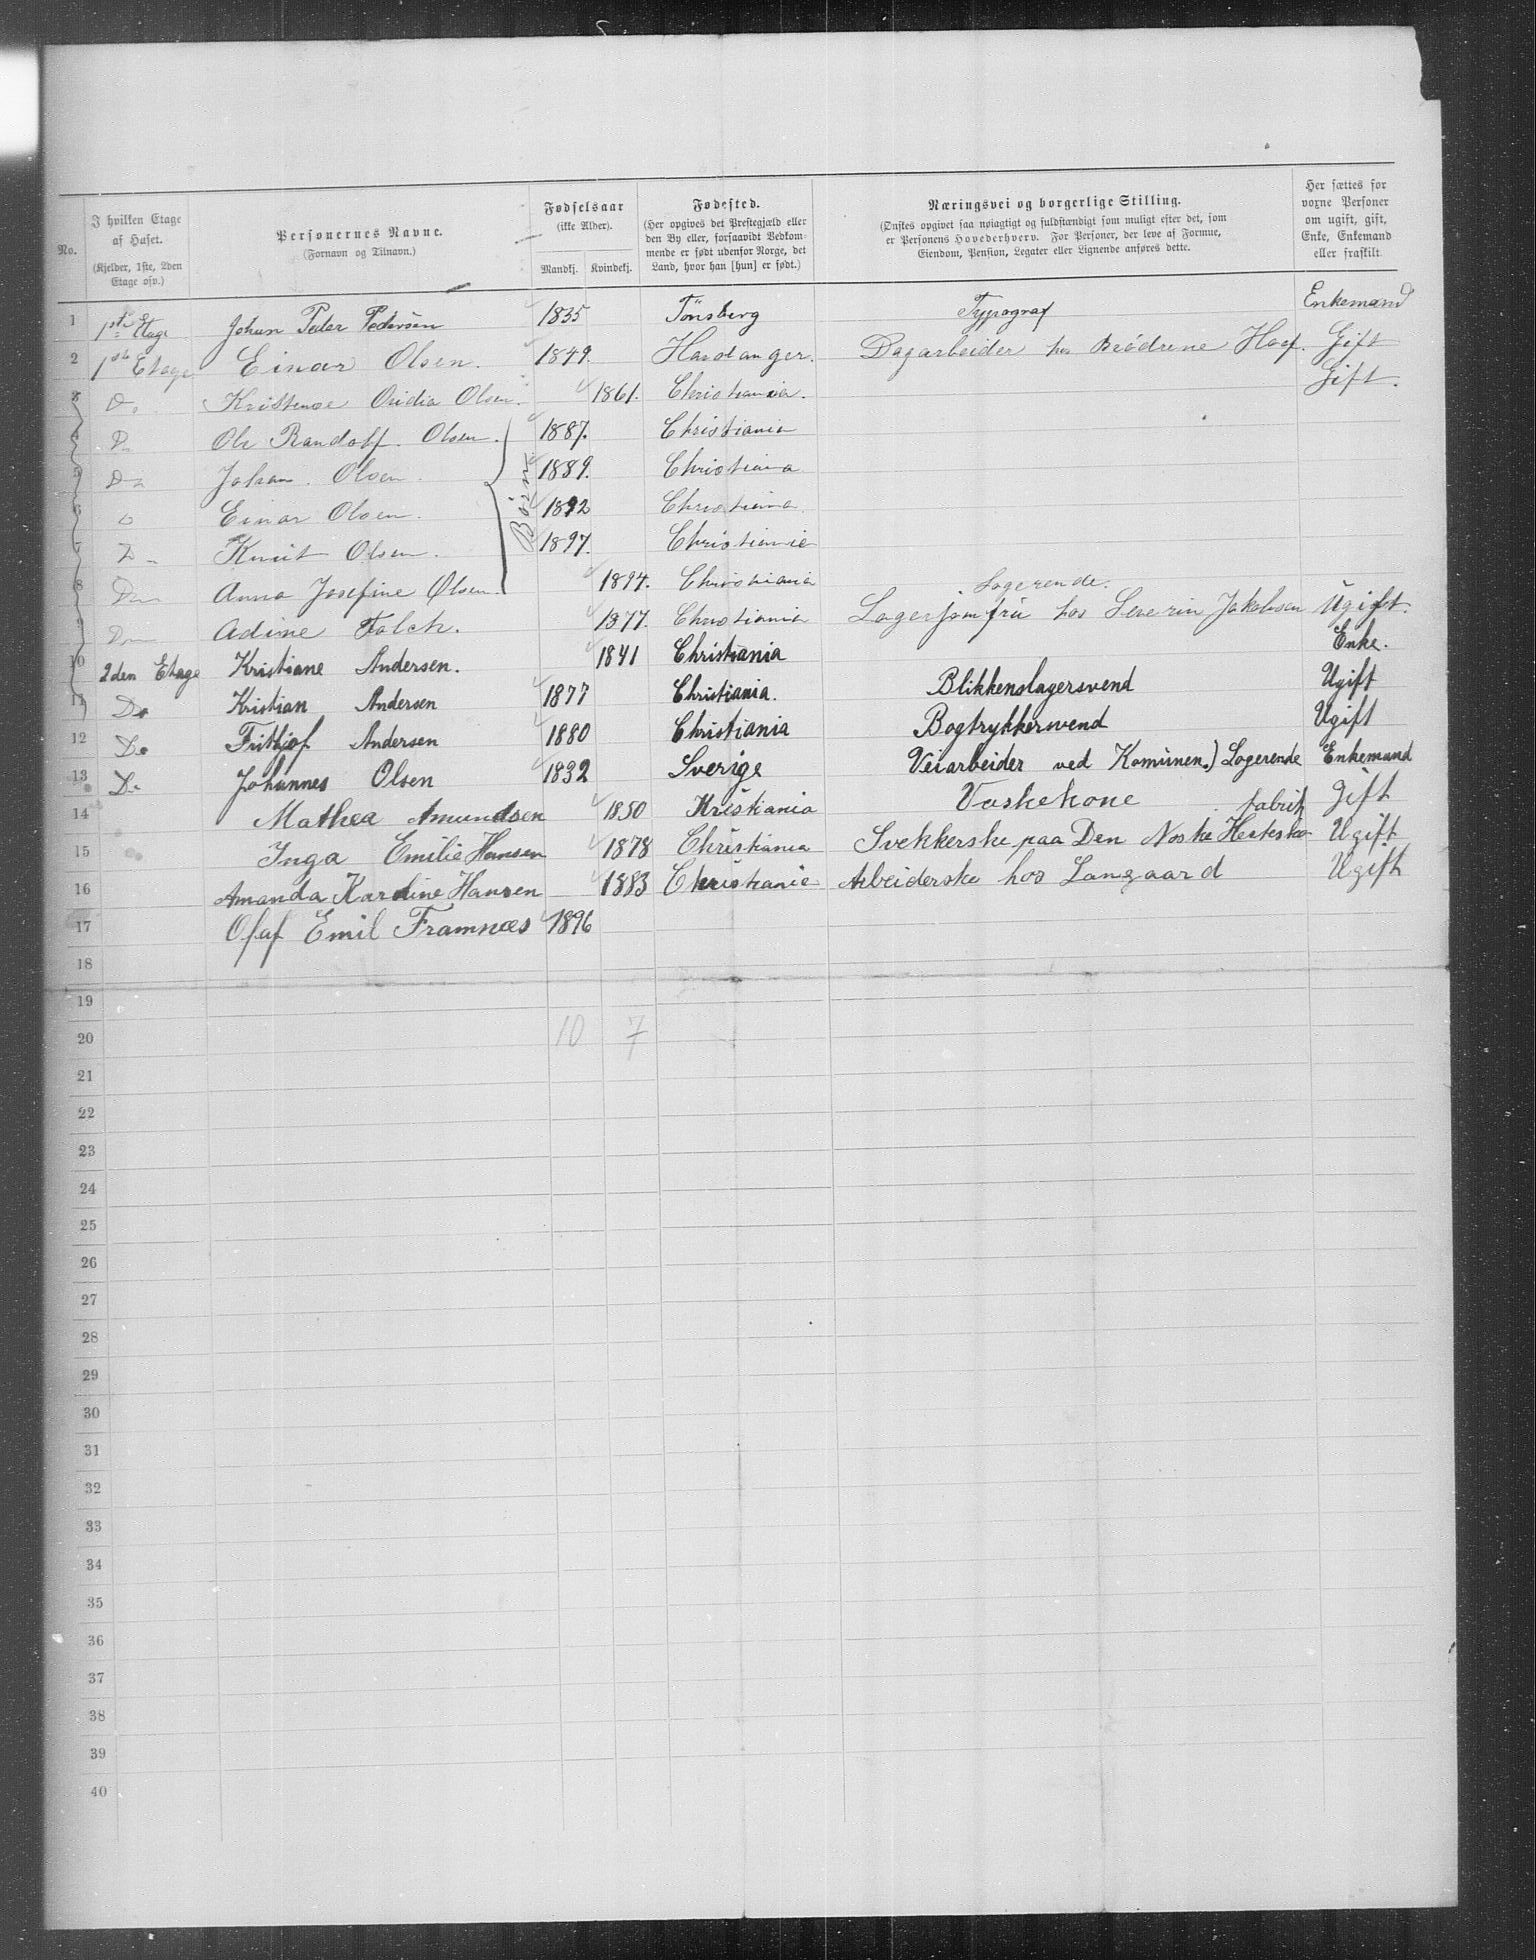 No.
I hvilken Etage af Huset. (Kjelder, 1ste, 2den Etage osv.)
Personernes Navne. (Fornavn og Tilnavn.)
Fødselsaar (ikke Alder). Mandkj. Kvindekj.
Fødested. (Her opgives det Prestegjæld eller den By eller, forsaavidt Vedkommende er født udenfor Norge, det Land, hvor han [hun] er født.)
Næringsvei og borgerlige Stilling. (Ønskes opgivet saa nøiagtigt og fuldstændigt som muligt efter det, som er Personens Hovederhverv. For Personer, der leve af Formue, Eiendom, Pension, Legater eller Lignende anføres dette.
Her sættes for voxne Personer om ugift, gift, Enke, Enkemand eller fraskilt
1 1ste Etage Johan Peder Pedersen 1835 Tönsberg Typograf Enkemand
2 1st Etage Einar Olsen. 1849. Hardanger. Dagarbeider hos Brödrene Hoef. Gift
3 Do Kristense Ovidia Olsen. 1861. Christiania. Gift.
4 Do Ole Randolf. Olsen. 1887. Christiania
5 Do Johan. Olsen. 1889. Christiana
6 Do Einar Olsen. 1892 Christiana
7 Do Knut Olsen. 1897. Christiania
Börn
8 Do Anna Josefine Olsen. 1894. Christiania
Logerende.
9 Do Adine Falck. 1877. Christiania Lagerjomfru hos Severin Jakobsen Ugift.
10 2den Etage Kristiane Andersen. 1841 Christiania Enke.
11 Do Kristian Andersen 1877 Christiania. Blikkenslagersvend Ugift
12 Do Frithjof Andersen 1880 Christiania Bogtrykkersvend Ugift
13 Do Johannes Olsen 1832 Sverige Veiarbeider ved Komunen.) Logerende Enkemand
14 Mathea Amundsen 1850 Kristiania Vaskekone gift
fabrik
15 Inga Emilie Hansen 1878 Christiania Svekkerske paa Den Noske Hestesko Ugift
16 Amanda Karoline Hansen 1883 Christianie Arbeiderske hos Langaard Ugift
17 Olaf Emil Framnæs 1896
18
19
20 10 7
21
22
23
24
25
26
27
28
29
30
31
32
33
34
35
36
37
38
39
40